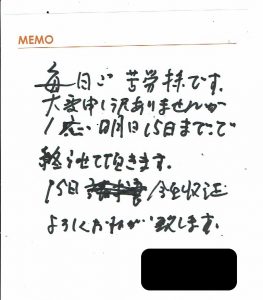 MEMO
毎日ご苦労様です。
大変申し訳ありませんが
1応、明日15日までで
終らせて頂きます。
15日 領収証
よろしくおねがい致します。